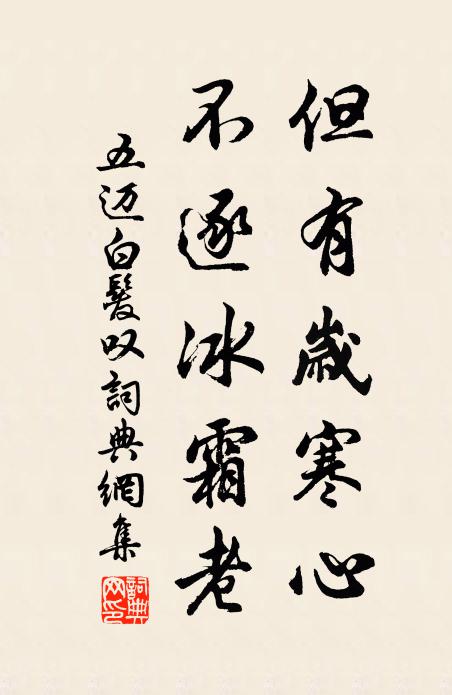 但有歲寒心
不逐冰霜老
五迈白髮叹詞典網集
詞典网印